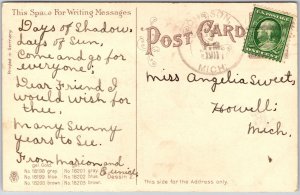 This Space For Writing Messages
Days of Shadow,
days of Sun,
Come and go for
everyone;
Dear Friend I
would wish for
thee,
Many Sunny
years to See.
From Marion and
Eunice
Printed in Germany
No 18198 brown
No 18199 blue
No 18201 gray
No 18202 blue
Dessin
POST CARD
MICH.
1911
Miss Angelia Sweet,
Howell
Mich.
This side for the Address only.